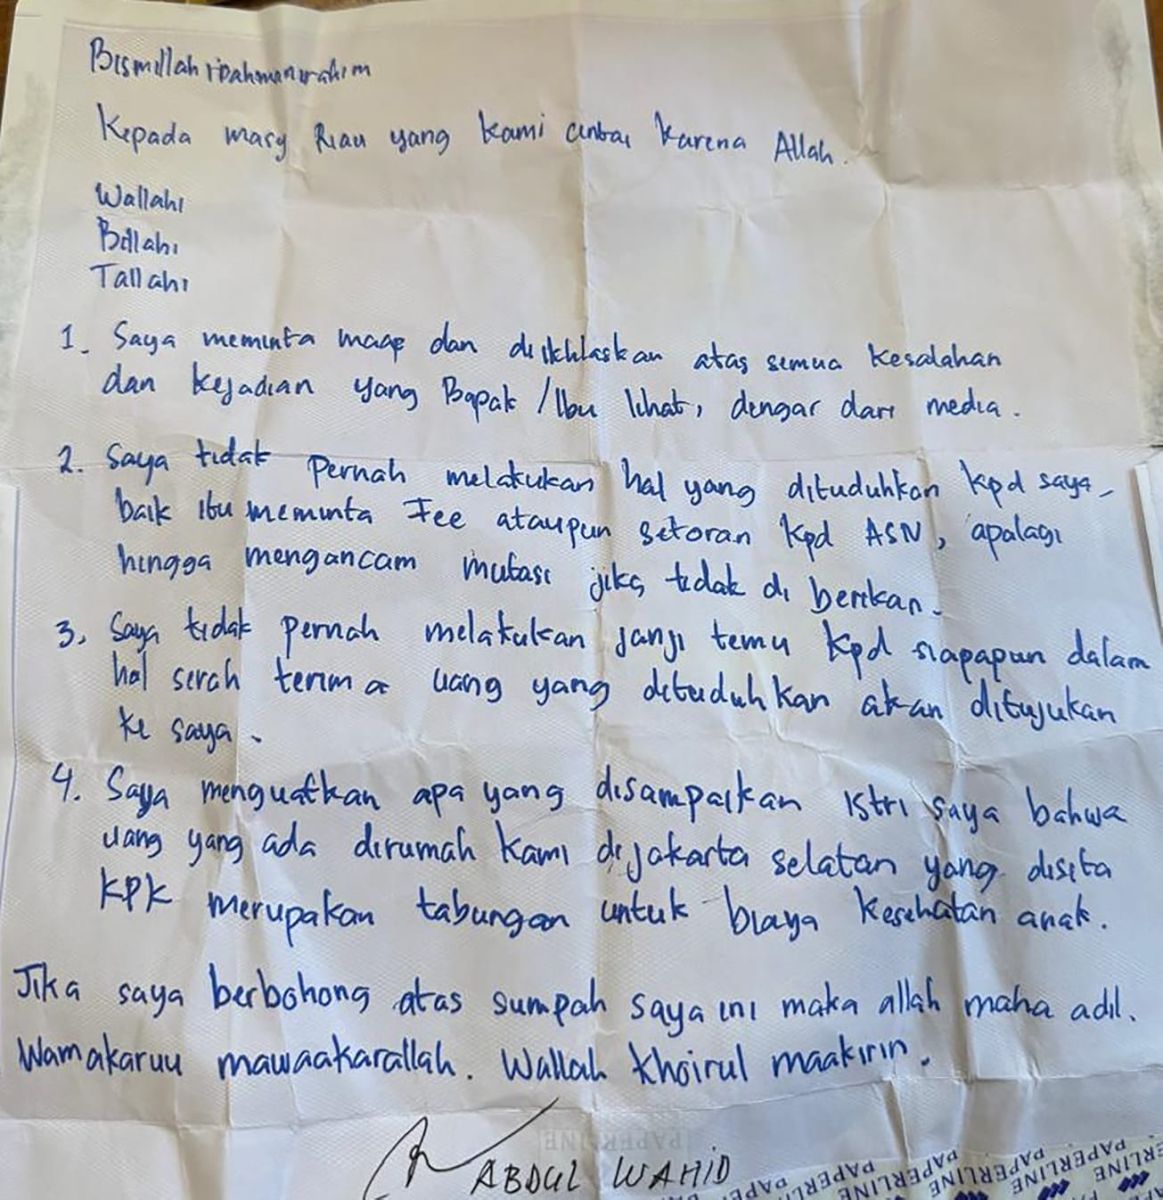 Bismillahirrahmanirrahim
Kepada masy Riau yang kami cintai karena Allah.
Wallahi
Billahi
Tallahi
1. Saya meminta maap dan diikhlaskan atas semua kesalahan
dan kejadian yang Bapak/Ibu lihat, dengar dari media.
2. Saya tidak pernah melakukan hal yang dituduhkan kpd saya
baik itu meminta Fee ataupun setoran kpd ASN, apalagi
hingga mengancam mutasi jika tidak di berikan.
3. Saya tidak pernah melakukan janji temu kpd siapapun dalam
hal serah terima uang yang dituduhkan akan ditujukan
ke saya.
4. Saya menguatkan apa yang disampaikan istri saya bahwa
uang yang ada dirumah kami di jakarta selatan yang disita
KPK merupakan tabungan untuk biaya kesehatan anak.
Jika saya berbohong atas sumpah saya ini maka allah maha adil.
Wamakaruu mawaakarallah. Wallah khoirul maakirin.
ABDUL WAHID
PAPERLINE
PAPERLINE PAPERLINE PAPERLINE PAPERLINE